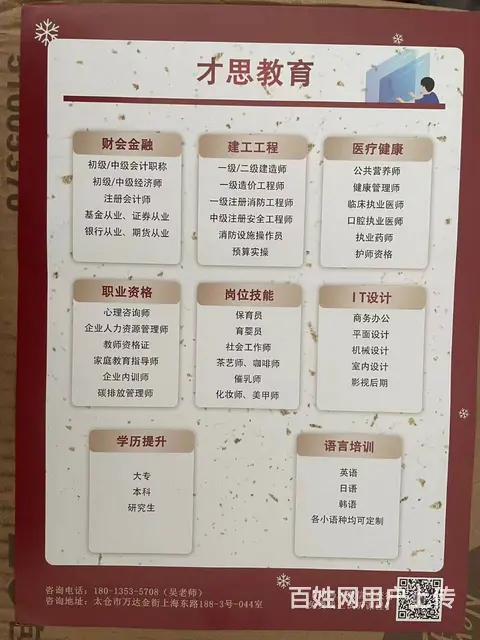 才思教育
财会金融
初级/中级会计职称
初级/中级经济师
注册会计师
基金从业、证券从业
银行从业、期货从业
建工工程
一级/二级建造师
一级造价工程师
一级注册消防工程师
中级注册安全工程师
消防设施操作员
预算实操
医疗健康
公共营养师
健康管理师
临床执业医师
口腔执业医师
执业药师
护师资格
职业资格
心理咨询师
企业人力资源管理师
教师资格证
家庭教育指导师
企业内训师
碳排放管理师
岗位技能
保育员
育婴员
社会工作师
茶艺师、咖啡师
催乳师
化妆师、美甲师
IT设计
商务办公
平面设计
机械设计
室内设计
影视后期
学历提升
大专
本科
研究生
语言培训
英语
日语
韩语
各小语种均可定制
咨询电话：180-1353-5708（吴老师）
咨询地址：太仓市万达金街上海东路188-3号-044室
百姓网用户上传